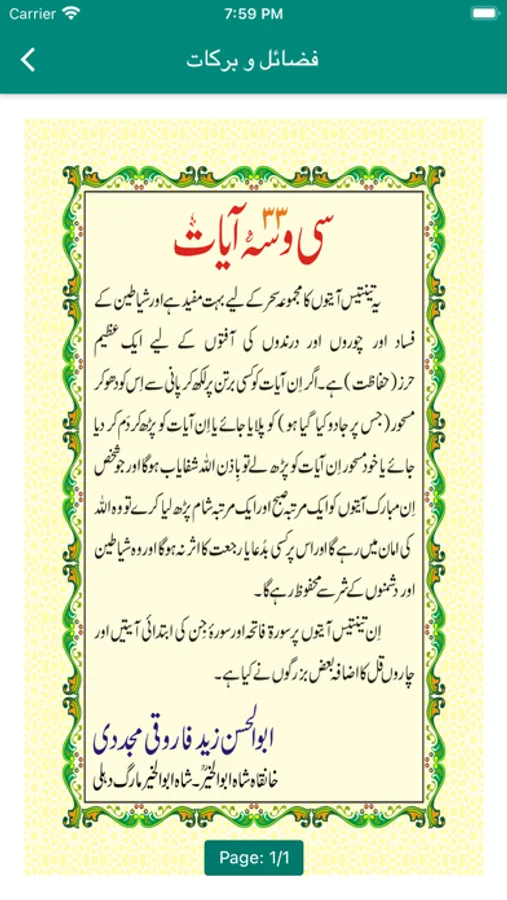 Carrier 7:59 PM
فضائل و برکات
سی و سہ ۳۳ آیات
یہ تینتیس آیتوں کا مجموعہ سحر کے لیے بہت مفید ہے اور شیاطین کے
فساد اور چوروں اور درندوں کی آفتوں کے لیے ایک عظیم
حرز (حفاظت) ہے۔ اگر اِن آیات کو کسی برتن پر لکھ کر پانی سے اِس کو دھو کر
مسحور (جس پر جادو کیا گیا ہو) کو پلایا جائے یا اِن آیات کو پڑھ کر دَم کر دیا
جائے یا خود مسحور اِن آیات کو پڑھ لے تو بِاذن اللہ شفایاب ہوگا اور جو شخص
اِن مبارک آیتوں کو ایک مرتبہ صبح اور ایک مرتبہ شام پڑھ لیا کرے تو وہ اللہ
کی امان میں رہے گا اور اس پر کسی بدُعا یا رجعت کا اثر نہ ہوگا اور وہ شیاطین
اور دشمنوں کے شر سے محفوظ رہے گا۔
اِن تینتیس آیتوں پر سورۃ فاتحہ اور سورۂ جِن کی ابتدائی آیتیں اور
چاروں قل کا اضافہ بعض بزرگوں نے کیا ہے۔
ابوالحسن زید فاروقی مجددی
خانقاہ شاہ ابوالخیرؒ۔ شاہ ابوالخیر مارگ دہلی
Page: 1/1